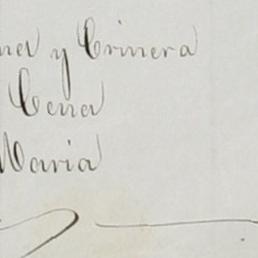 y Crinera
Cena
Maria